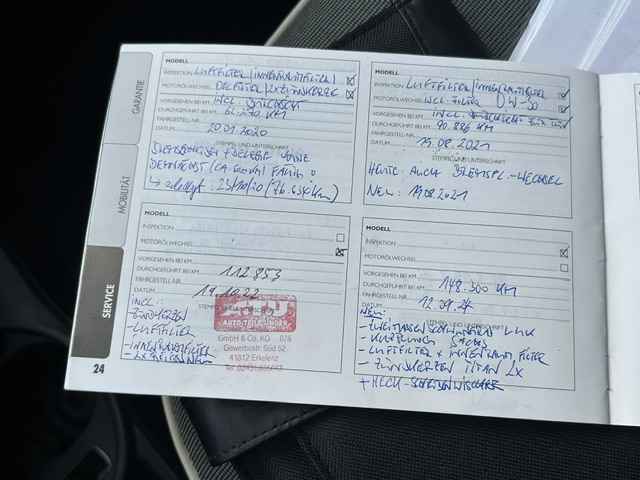 GARANTIE
MOBILITÄT
SERVICE
24
MODELL
INSPEKTION LUFTFILTER/INNENRAUMFILTER/
MOTORÖLWECHSEL ÖLFILTER/2XZÜNDKERZE
VORGESEHEN BEI KM INCL.
DURCHGEFÜHRT BEI KM KM
FAHRGESTELL-NR.
DATUM 20.01.2020
STEMPEL UND UNTERSCHRIFT
BREMSFLÜSSIGK. VORNE
DEMNÄCHST (CA. 6000KM) FÄLLIG
→ erledigt: 23/10/20 (76.636km)
MODELL
INSPEKTION LUFTFILTER/INNENRAUMFILTER
MOTORÖLWECHSEL INCL. FILTER 0W-30
VORGESEHEN BEI KM INCL.
DURCHGEFÜHRT BEI KM 90.886 KM
FAHRGESTELL-NR.
DATUM 19.08.2021
STEMPEL UND UNTERSCHRIFT
HEUTE: AUCH BREMSFL.-WECHSEL
NEU: 19.08.2021
MODELL
INSPEKTION
MOTORÖLWECHSEL
VORGESEHEN BEI KM
DURCHGEFÜHRT BEI KM 112853
FAHRGESTELL-NR.
DATUM 19.10.22
INCL.:
-ZÜNDKERZEN
-LUFTFILTER
-INNENRAUMFILTER
AUTO-TEILE
GmbH & Co. KG 076
Gewerbestr. Süd 52
41812 Erkelenz
MODELL
INSPEKTION
MOTORÖLWECHSEL
VORGESEHEN BEI KM
DURCHGEFÜHRT BEI KM 148.300 KM
FAHRGESTELL-NR.
DATUM 12.09.24
NEU:
-ZWEIMASSENSCHWUNGRAD LUK
-KUPPLUNG SACHS
-LUFTFILTER + INNENRAUMFILTER
-ZÜNDKERZEN TITAN 2X
+ HECK-SCHEIBENWISCHER